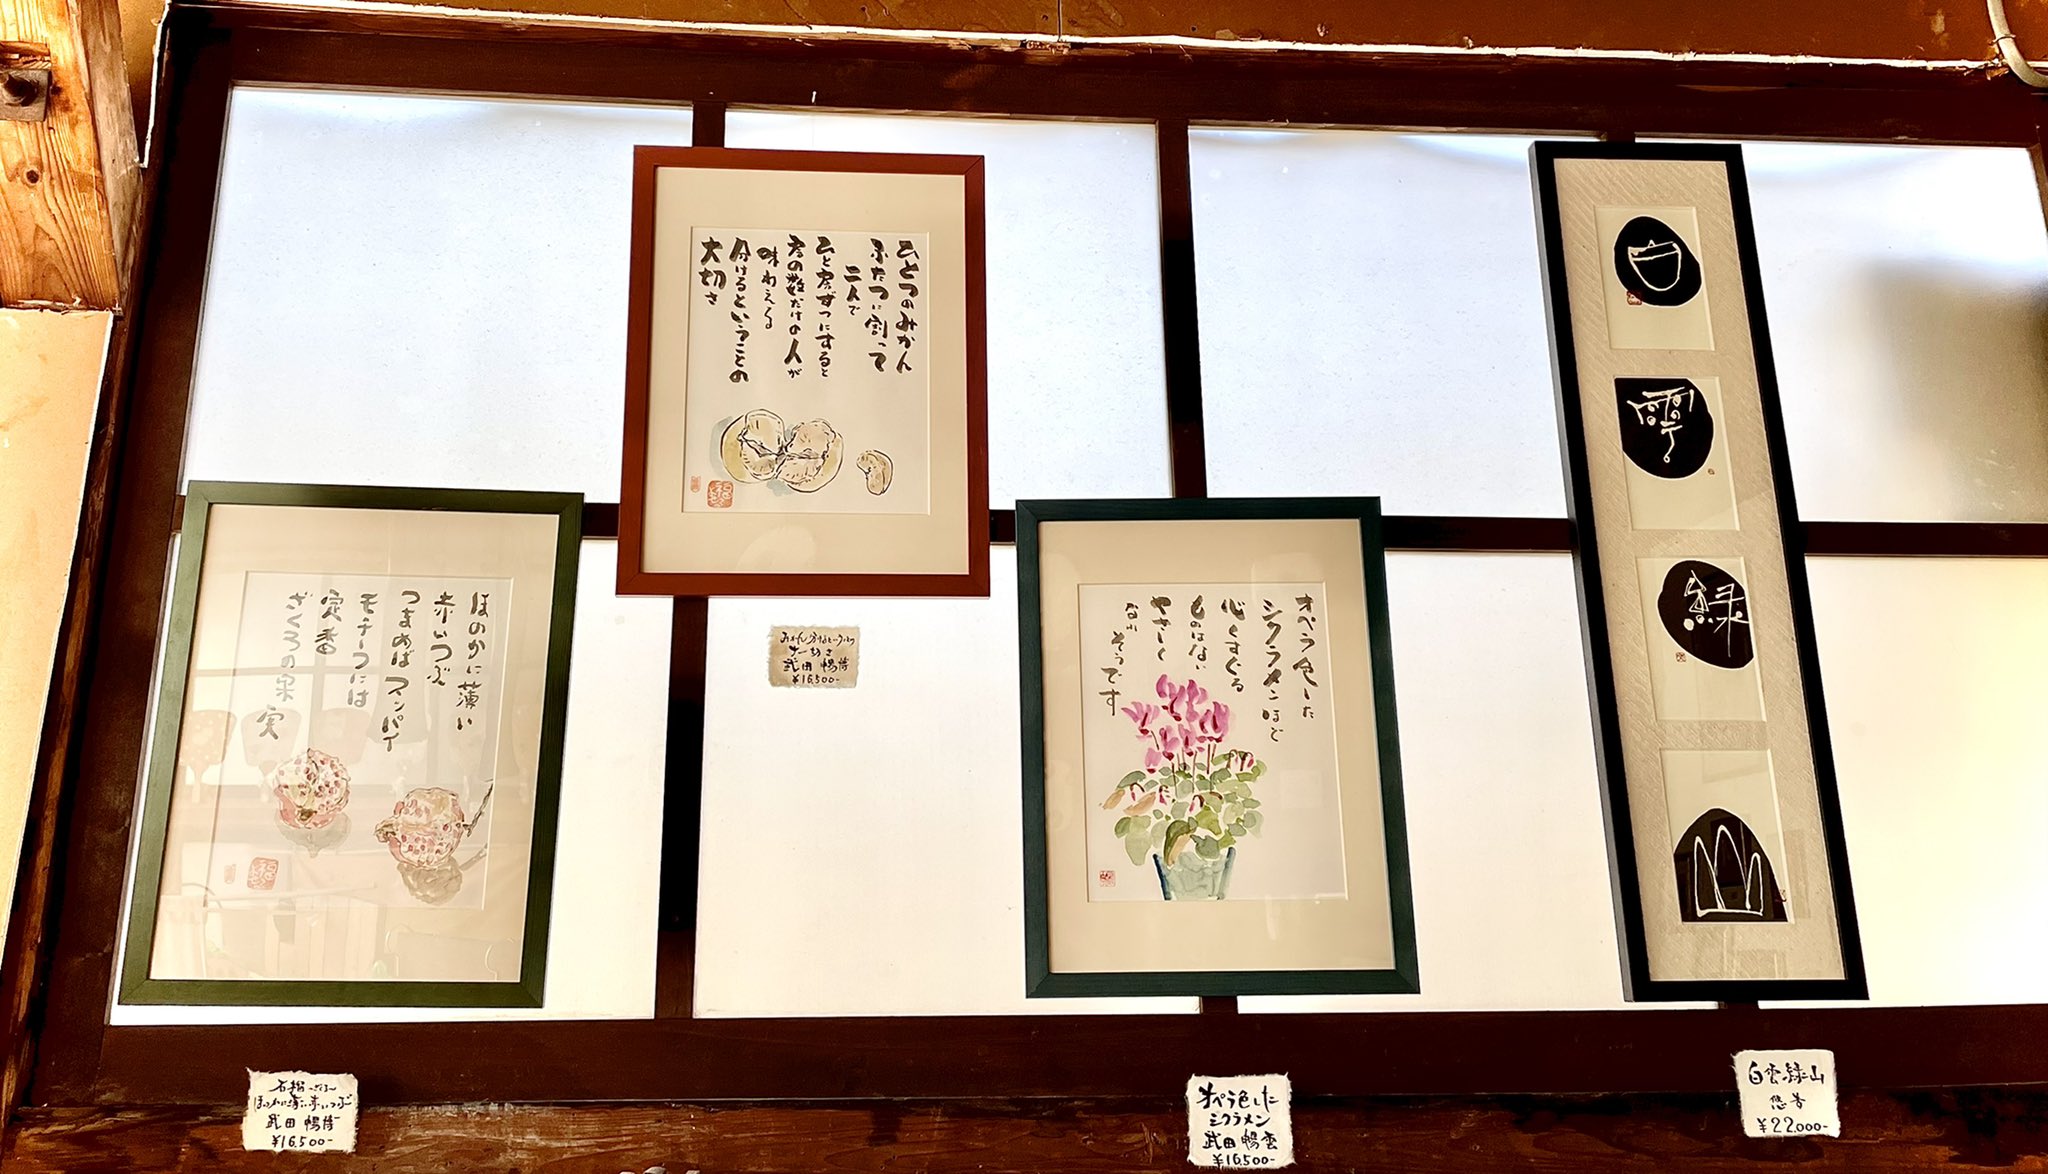 ほのかに薄い
赤いつぶ
つまめばスッパイ
モチーフには
定番
ざくろの果実
ひとつのみかん
ふたつに割って
二人で
ひと房ずつにすると
房の数だけの人が
味わえる
分けるということの
大切さ
オペラ色した
シクラメンほど
心くすぐる
ものはない
やさしく
なれそうです
白
雲
緑
山
みかん分けるということの
大切さ
武田 暢
¥16,500-
石榴 -ざくろ-
ほのかに薄い赤いつぶ
武田 暢
¥16,500-
オペラ色した
シクラメン
武田 暢雲
¥16,500-
白雲緑山
悠
¥22,000-